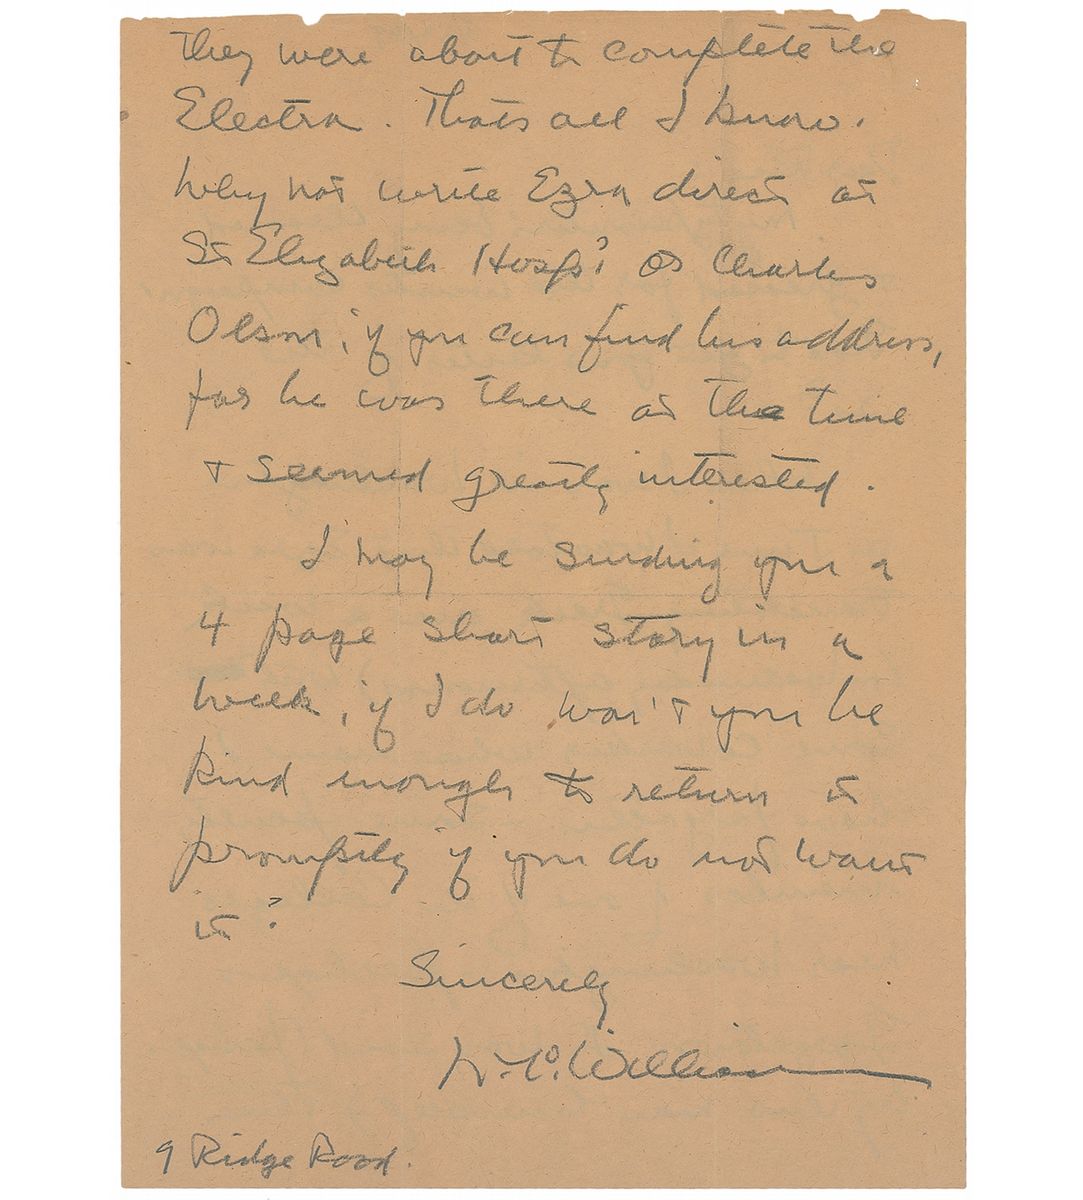 They were about to complete the
Electra. Thats all I know.
Why not write Ezra direct at
St Elizabeth Hosp? or Charles
Olson, if you can find his address,
for he was there at the time
+ seemed greatly interested.
I may be sending you a
4 page short story in a
week, if I do won't you be
kind enough to return it
promptly if you do not want
it?
Sincerely
W. C. Williams
9 Ridge Road.